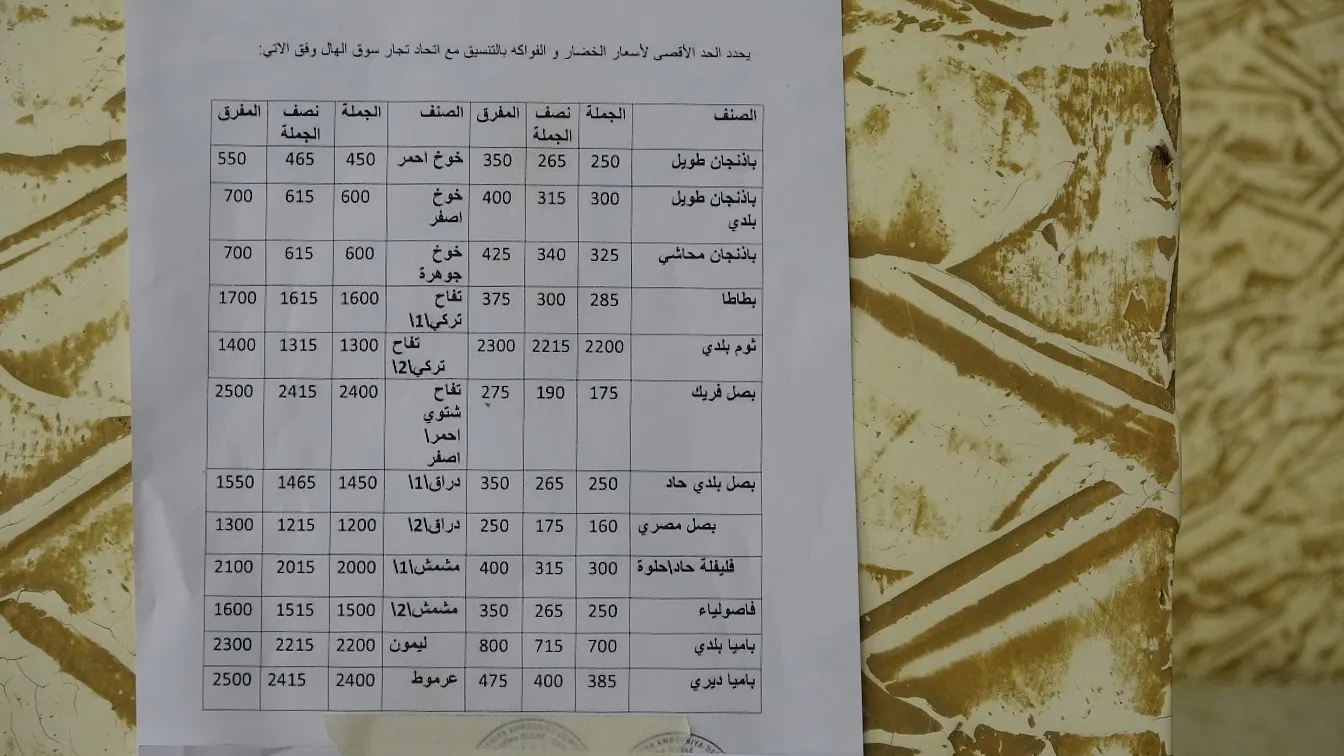 يحدد الحد الأقصى لأسعار الخضار و الفواكه بالتنسيق مع اتحاد تجار سوق الهال وفق الاتي:
الصنف الجملة نصف الجملة المفرق الصنف الجملة نصف الجملة المفرق
باذنجان طويل 250 265 350 خوخ احمر 450 465 550
باذنجان طويل بلدي 300 315 400 خوخ اصفر 600 615 700
باذنجان محاشي 325 340 425 خوخ جوهرة 600 615 700
بطاطا 285 300 375 تفاح تركي\1\ 1600 1615 1700
ثوم بلدي 2200 2215 2300 تفاح تركي\2\ 1300 1315 1400
بصل فريك 175 190 275 تفاح شتوي احمر\ اصفر 2400 2415 2500
بصل بلدي حاد 250 265 350 دراق\1\ 1450 1465 1550
بصل مصري 160 175 250 دراق\2\ 1200 1215 1300
فليفلة حاد\حلوة 300 315 400 مشمش\1\ 2000 2015 2100
فاصولياء 250 265 350 مشمش\2\ 1500 1515 1600
باميا بلدي 700 715 800 ليمون 2200 2215 2300
باميا ديري 385 400 475 عرموط 2400 2415 2500